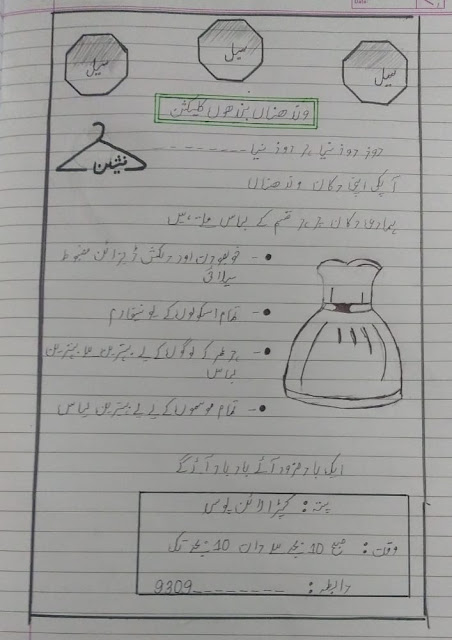 سیل
سیل
سیل
وندھناں بندھوں کلیکشن
روز روز نیا ہر روز نیا - - - - - - -
فیشن
آپکی اپنی دکان وندھناں
ہماری دکان پر ہر قسم کے لباس ملتے ہیں
خوبصورت اور دلکش ڈیزائن مضبوط
سلائی
تمام اسکولوں کے یونیفارم
ہر عمر کے لوگوں کے لیے بہترین سے بہترین
لباس
تمام موسموں کے لیے بہترین لباس
ایک بار ضرور آئے بار بار آؤگے
پتہ : کپڑا لائن پوسی
وقت : صبح 10 بجے سے رات 10 بجے تک
رابطہ : 9309--------